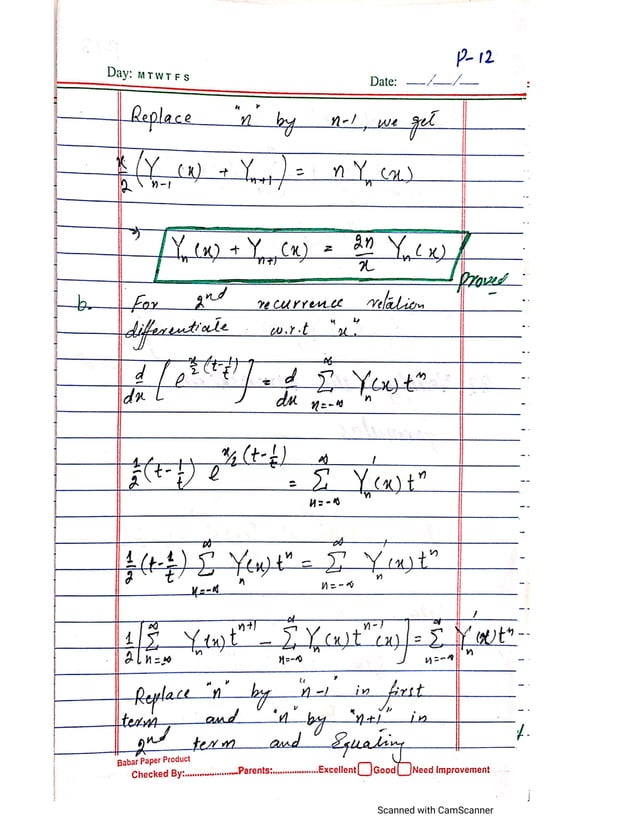 P-12
Day: M T W T F S
Date: __/__/__
Replace "n" by n-1, we get
x/2 (Y_{n-1}(x) + Y_{n+1}) = n Y_n(x)
⇒ Y_n(x) + Y_{n+1}(x) = 2n/x Y_n(x)
Proved
b. For 2nd recurrence relation
differentiate w.r.t "x".
d/dx [e^{x/2 (t-1/t)}] = d/dx ∑_{n=-∞}^{∞} Y_n(x) t^n
1/2 (t-1/t) e^{x/2 (t-1/t)} = ∑_{n=-∞}^{∞} Y_n'(x) t^n
1/2 (t-1/t) ∑_{n=-∞}^{∞} Y_n(x) t^n = ∑_{n=-∞}^{∞} Y_n'(x) t^n
1/2 [∑_{n=-∞}^{∞} Y_n(x) t^{n+1} - ∑_{n=-∞}^{∞} Y_n(x) t^{n-1}(x)] = ∑_{n=-∞}^{∞} Y_n'(x) t^n
Replace "n" by "n-1" in first
term and "n" by "n+1" in
2nd term and Equaling
Babar Paper Product
Checked By:....................Parents:....................Excellent Good Need Improvement
Scanned with CamScanner